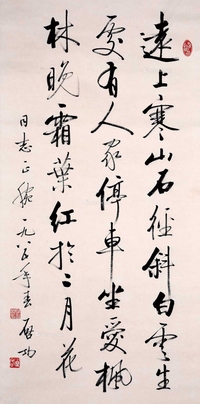 遠上寒山石徑斜白雲生
處有人家停車坐愛楓
林晚霜葉紅於二月花
同志正腕一九八五年春啟功